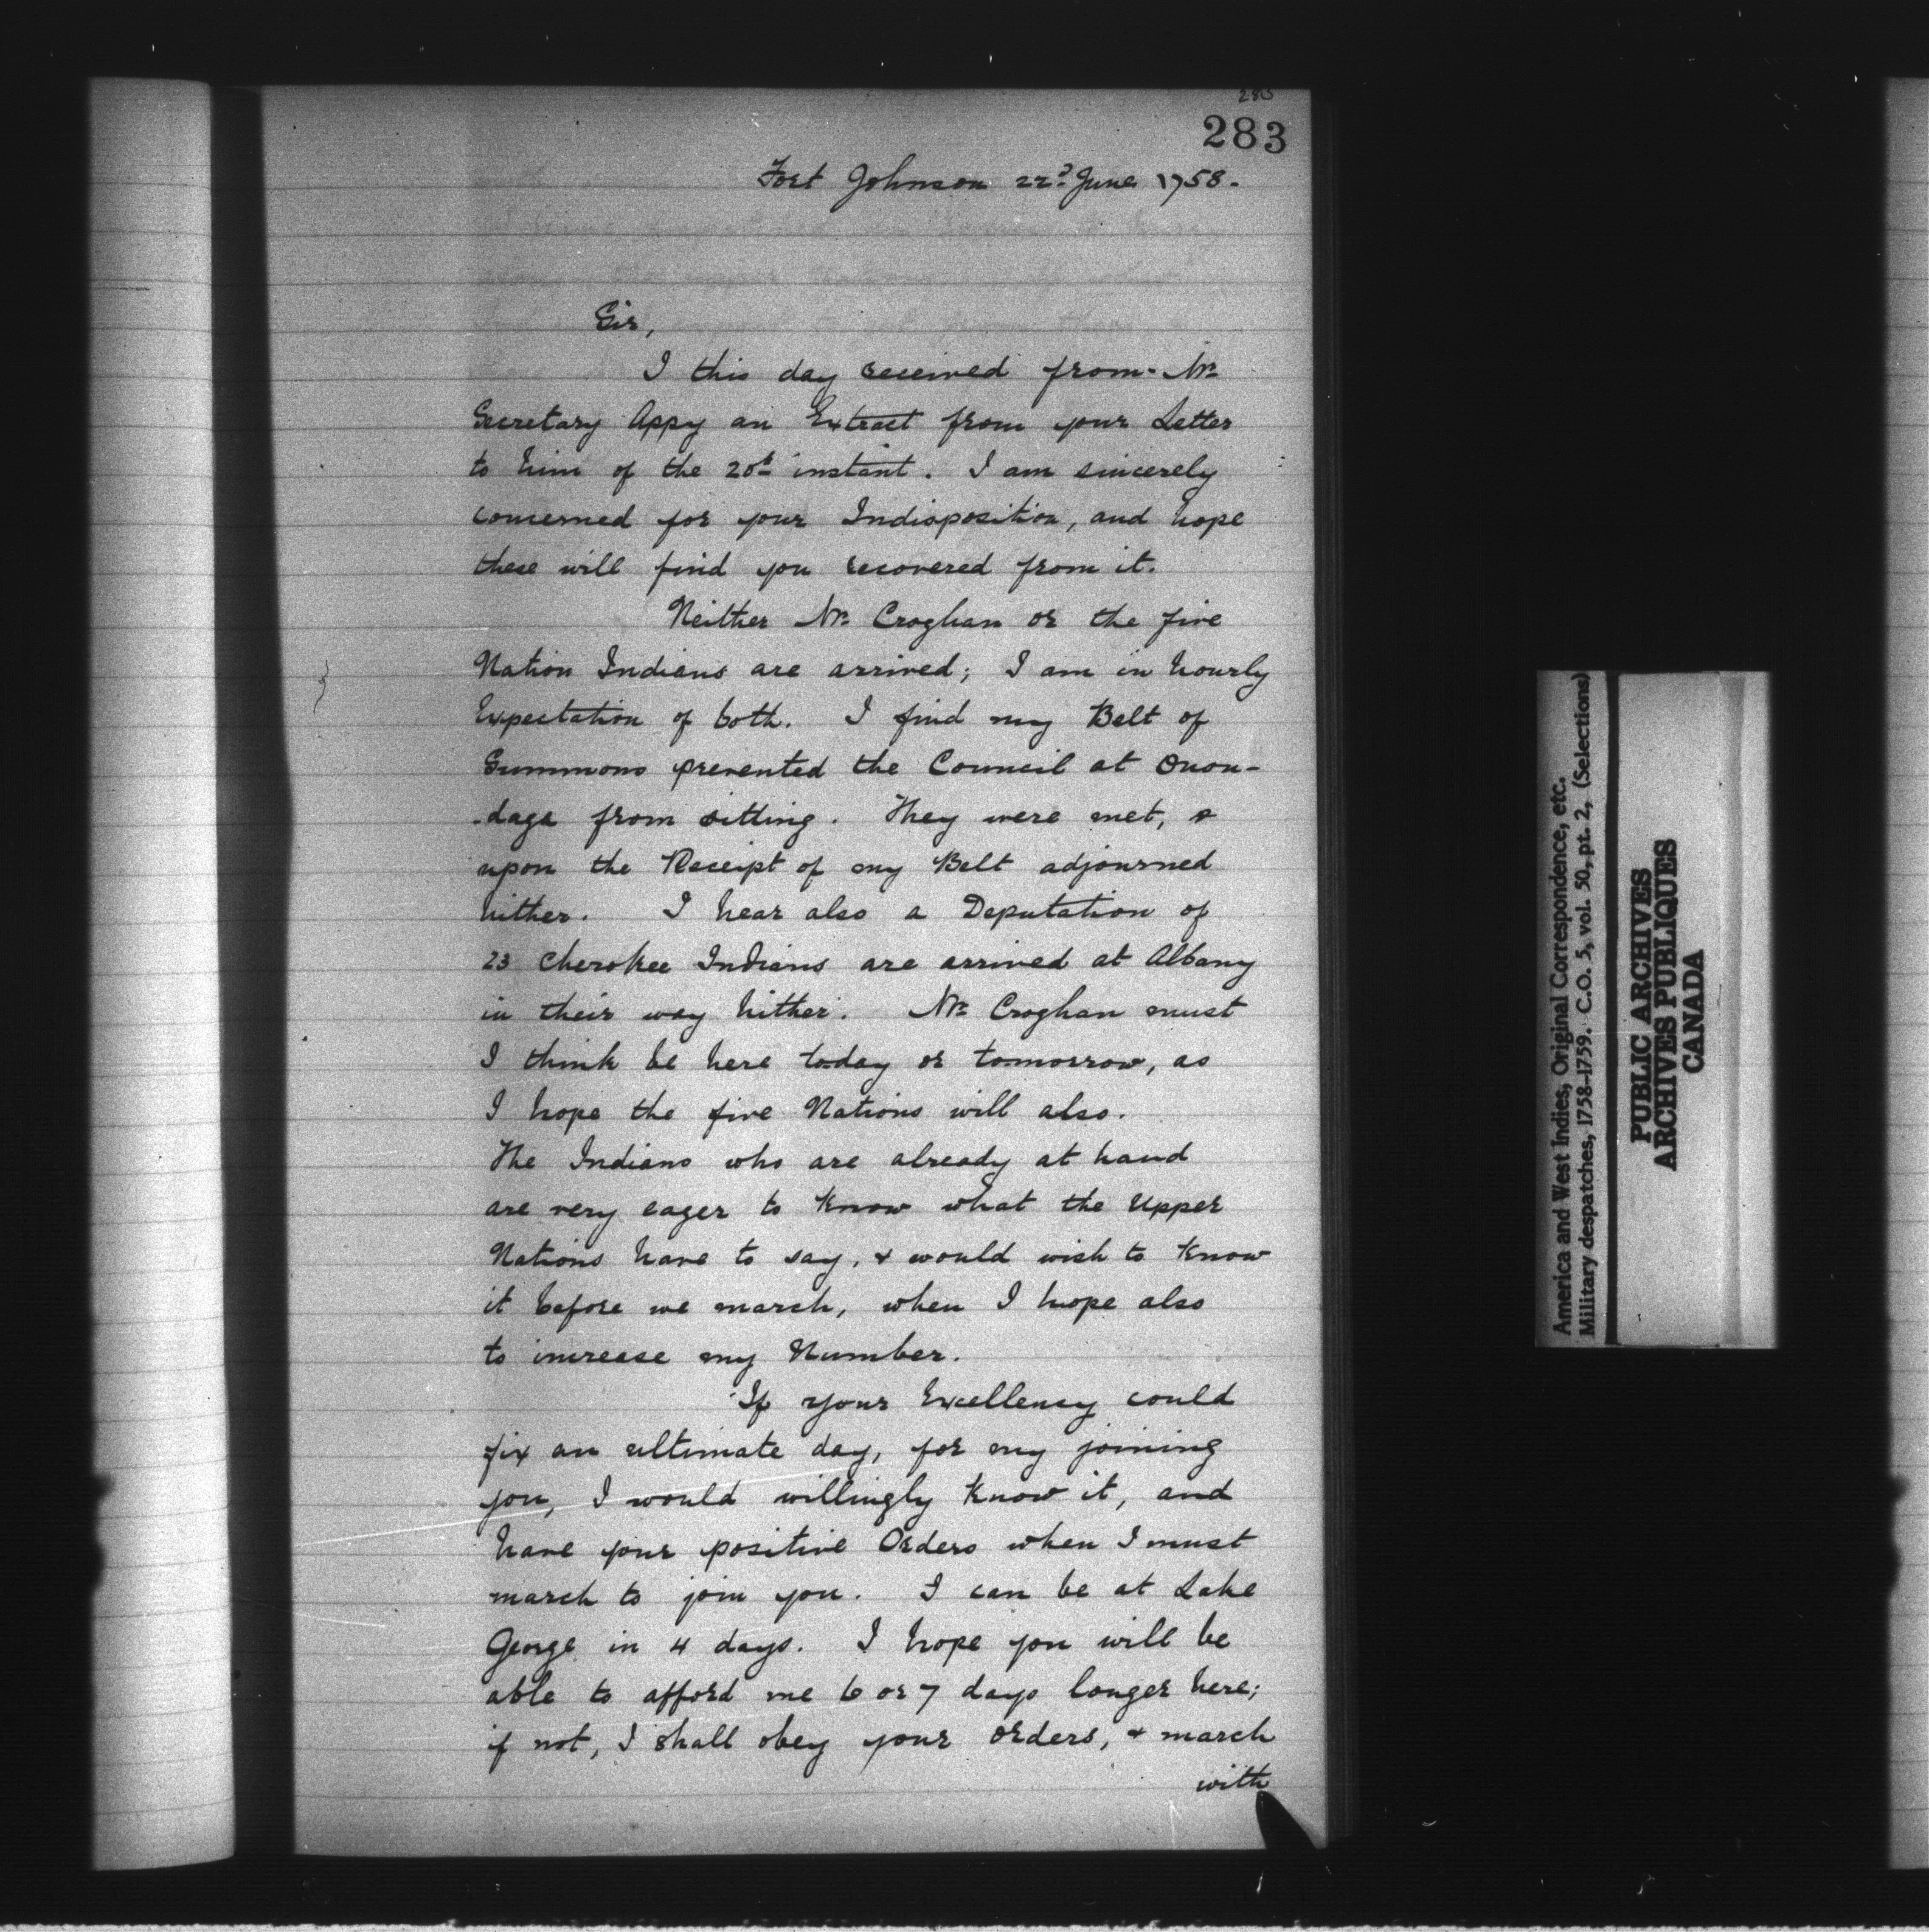 283
Fort Johnson 22d June 1758.
Sir,
I this day received from Mr
Secretary Appy an Extract from your Letter
to him of the 20th instant. I am sincerely
concerned for your Indisposition, and hope
these will find you recovered from it.
Neither Mr Croghan or the five
Nation Indians are arrived; I am in hourly
Expectation of both. I find my Belt of
Summons prevented the Council at Onon-
-daga from sitting. They were met, &
upon the Receipt of my Belt adjourned
hither. I hear also a Deputation of
23 Cherokee Indians are arrived at Albany
in their way hither. Mr Croghan must
I think be here today or tomorrow, as
I hope the five Nations will also.
The Indians who are already at hand
are very eager to know what the Upper
Nations have to say, & would wish to know
it before we march, when I hope also
to increase my Number.
If your Excellency could
fix an ultimate day, for my joining
you, I would willingly know it, and
have your positive Orders when I must
march to join you. I can be at Lake
George in 4 days. I hope you will be
able to afford me 6 or 7 days longer here;
if not, I shall obey your orders, & march
with
America and West Indies, Original Correspondence, etc.
Military despatches, 1758-1759. C.O. 5, vol. 50, pt. 2, (Selections)
PUBLIC ARCHIVES
ARCHIVES PUBLIQUES
CANADA